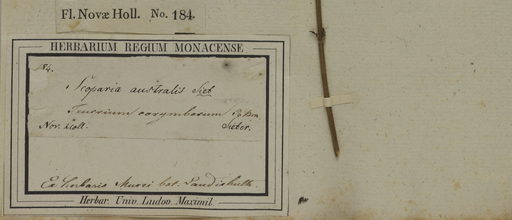 Fl. Novæ Holl. No. 184.
HERBARIUM REGIUM MONACENSE
184.
Scoparia australis Sieb
Teucrium corymbosum R Brn
Nov. Holl. Sieber.
Ex herbario Musei bot. Landishuth.
Herbar. Univ. Ludov. Maximil.